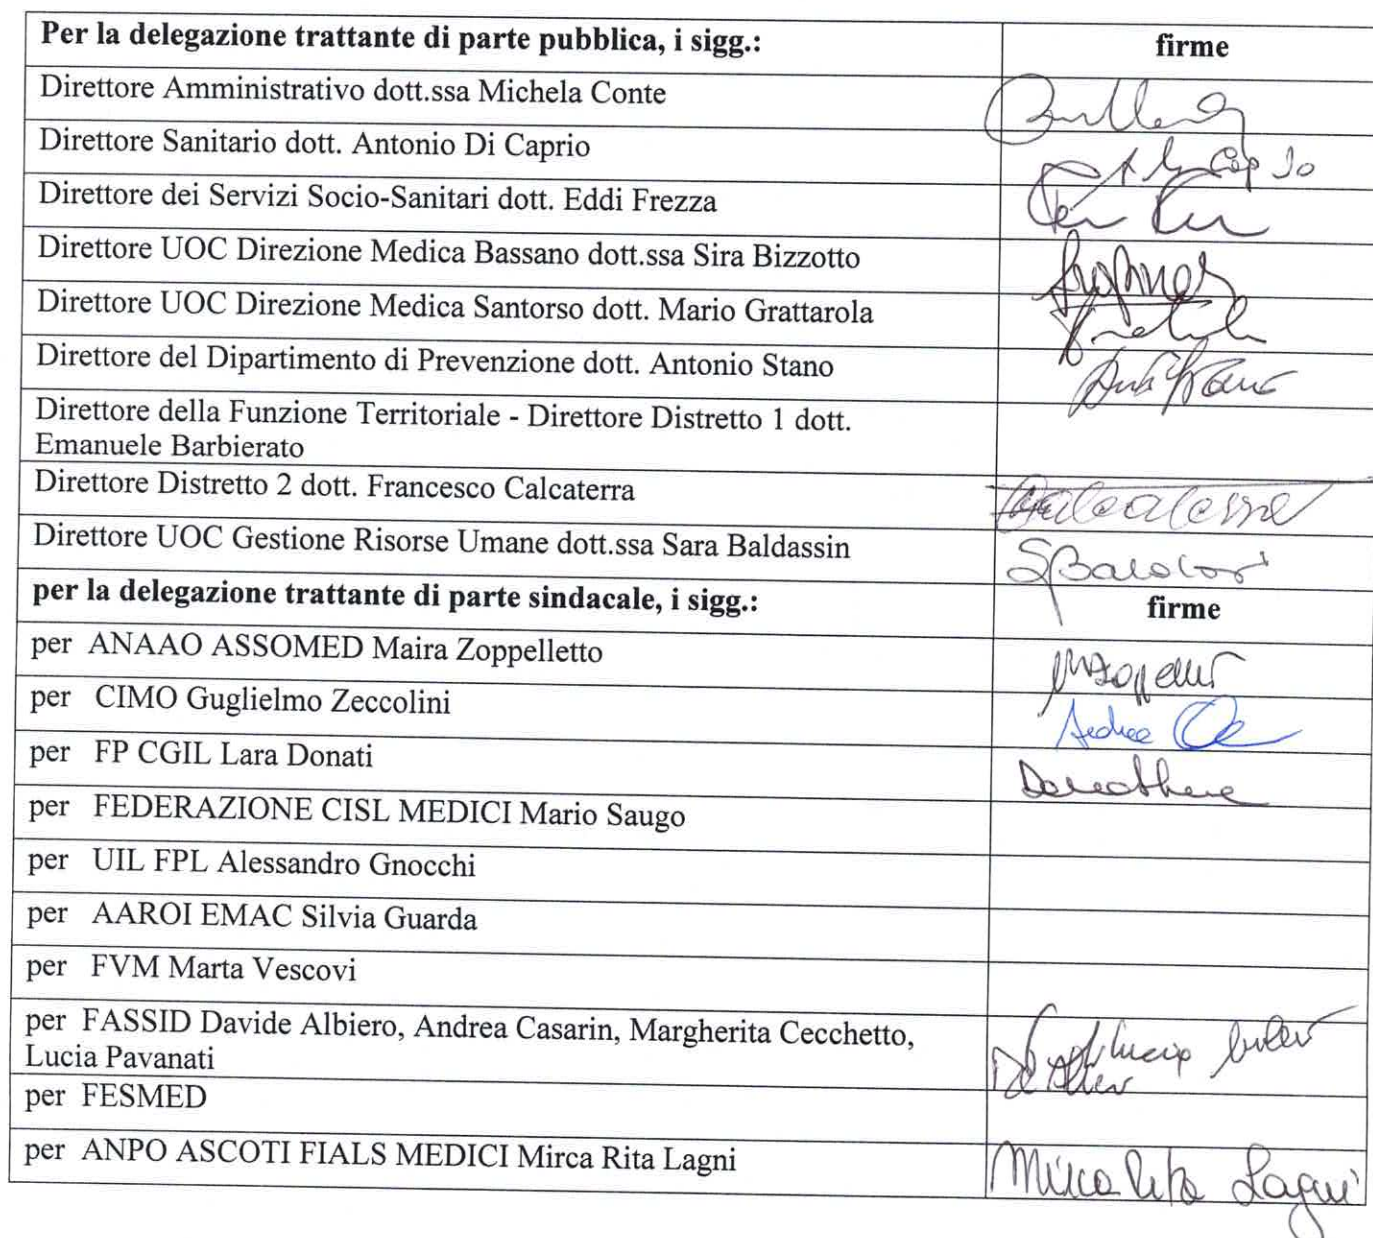 Per la delegazione trattante di parte pubblica, i sigg.: firme
Direttore Amministrativo dott.ssa Michela Conte
Direttore Sanitario dott. Antonio Di Caprio
Direttore dei Servizi Socio-Sanitari dott. Eddi Frezza
Direttore UOC Direzione Medica Bassano dott.ssa Sira Bizzotto
Direttore UOC Direzione Medica Santorso dott. Mario Grattarola
Direttore del Dipartimento di Prevenzione dott. Antonio Stano
Direttore della Funzione Territoriale - Direttore Distretto 1 dott.
Emanuele Barbierato
Direttore Distretto 2 dott. Francesco Calcaterra
Direttore UOC Gestione Risorse Umane dott.ssa Sara Baldassin
per la delegazione trattante di parte sindacale, i sigg.: firme
per ANAAO ASSOMED Maira Zoppelletto
per CIMO Guglielmo Zeccolini
per FP CGIL Lara Donati
per FEDERAZIONE CISL MEDICI Mario Saugo
per UIL FPL Alessandro Gnocchi
per AAROI EMAC Silvia Guarda
per FVM Marta Vescovi
per FASSID Davide Albiero, Andrea Casarin, Margherita Cecchetto,
Lucia Pavanati
per FESMED
per ANPO ASCOTI FIALS MEDICI Mirca Rita Lagni Mirca Rita Lagni